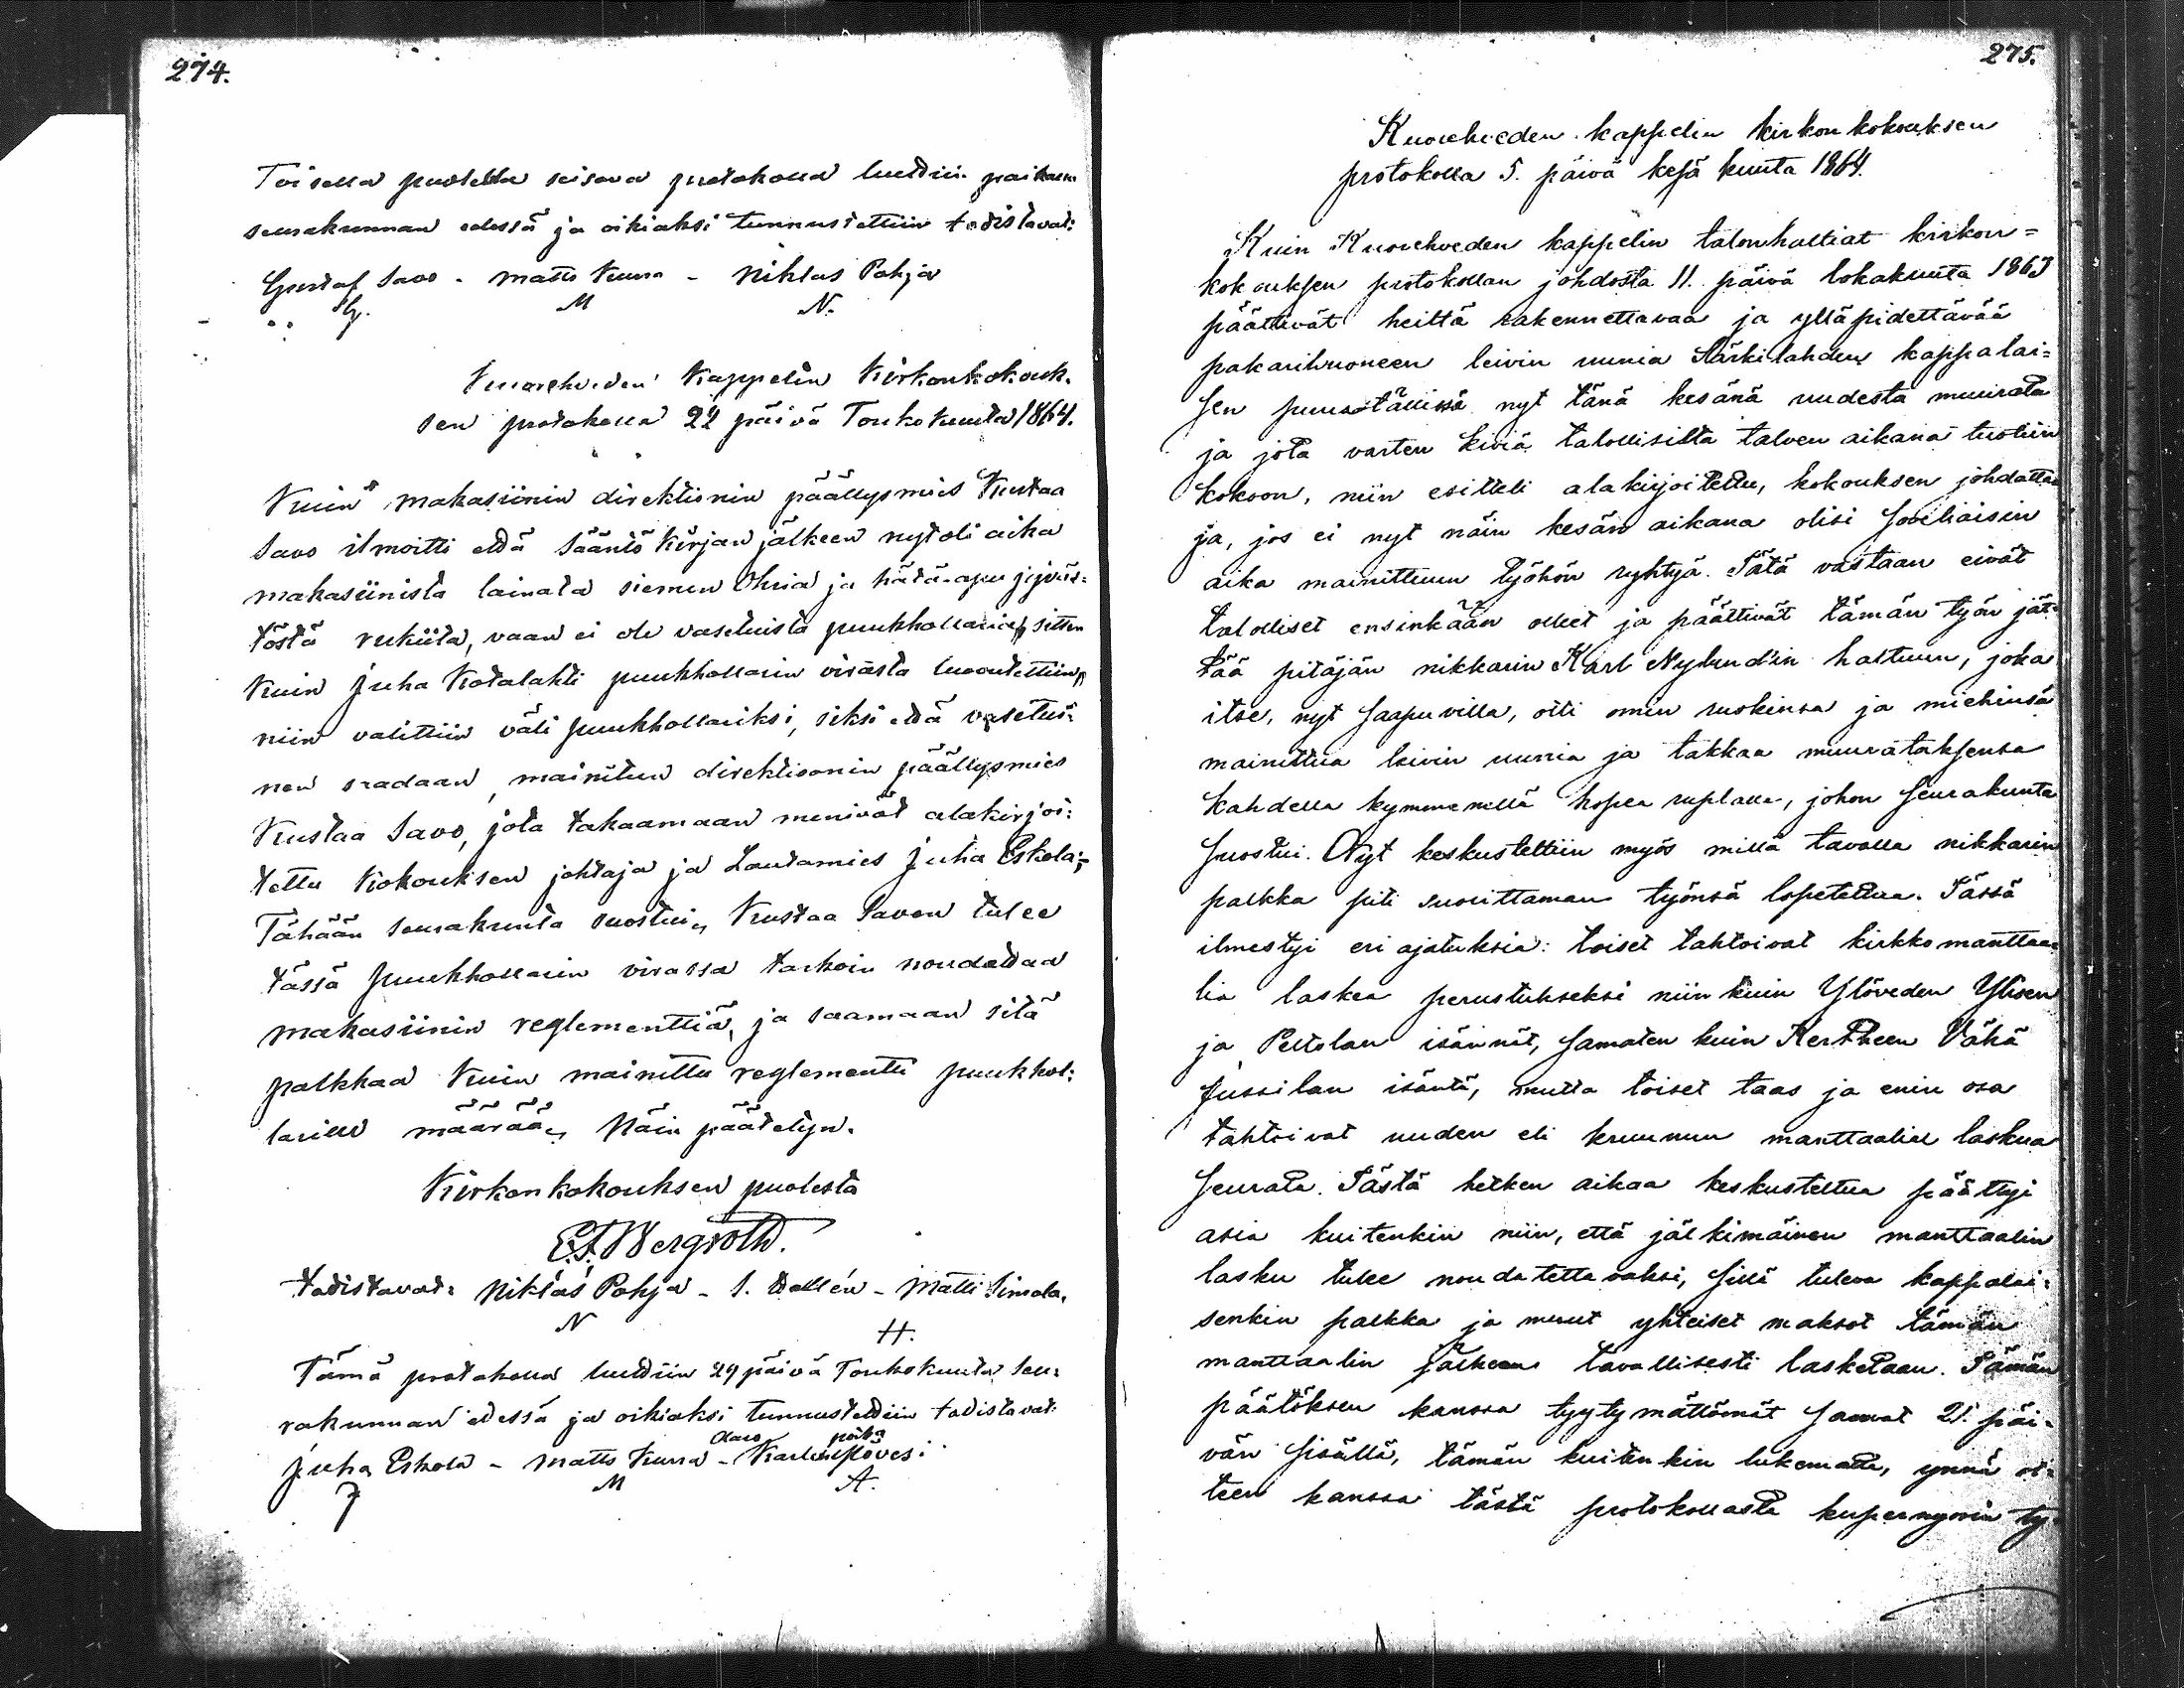 274.
Toisella puolella seisova protokolla luettiin paikan
seurakunnan edessä ja oikiaksi tunnustettiin todistavat:
Gustaf Savo - Matts Kurra - Niklas Pohja
G. M N.
Kuoreheden Kappelin Kirkonkokouk-
sen protokolla 22 päivä Toukokuuta 1864.
Kuin makasiinin direktionin päällysmies Kustaa
Savo ilmoitti että sääntö kirjan jälkeen nyt oli aika
makasiinista lainata siemen Ohria ja hätä-apu jyväs-
töstä rukiita, vaan ei ole vasetuista puukhollaria, sitten
kuin Juha Kotalahti puukhollarin virasta luovutettiin,
niin valittiin väli puukhollariksi, siksi että vasetui-
nen saadaan, mainitun direktisonin päällysmies
Kustaa Savo, jota takaamaan menivät alakirjoi-
tettu Kokouksen johtaja ja Lautamies Juha Eskola;
Tähään seurakunta suostui, Kustaa Savon tulee
tässä puukhollarin virassa tarkoin noudattaa
makasiinin reglementtiä, ja saamaan sitä
palkkaa kuin mainittu reglementti puukhol-
larille määrää, Näin päätetyn.
Kirkonkokouksen puolesta
E.F. Bergroth.
todistavat: Niklas Pohja - S. Wallén - Matti Simola,
N H.
Tämä protokolla luettiin 29 päivä Toukokuuta seu-
rakunnan edessä ja oikiaksi tunnustettiin todistavat:
poika
Juha Eskola - Matts Kurra - Ylövesi
J M A.
275.
Kuoreheeden kappelin kirkon kokouksen
protokolla 5. päivä kesä kuuta 1864.
Kuin Kuoreheeden kappelin talonhaltiat kirkon=
kokouksen protokollan johdosta 11. päivä lokakuuta 1863
päättivät heiltä rakennettavaa ja ylläpidettävää
pakarihuoneen leivin uunia Särkilahden kappalai=
sen puuställissä nyt tänä kesänä uudesta muurata
ja jota varten kiviä talollisilta talven aikana tuotiin
kokoon, niin esitteli alakirjoitettu, kokouksen johdatta
ja, jos ei nyt näin kesän aikana olisi soveliaisin
aika mainittuun työhön ryhtyä. Tätä vastaan eivät
talolliset ensinkään olleet ja päättivät tämän työn jät-
tää pitäjän nikkarin Karl Nylund'in haltuun, joka
itse, nyt saapuvilla, otti omin ruokinsa ja miehinsä
mainittua leivin uunia ja takkaa muurataksensa
kahdella kymmenellä hopea ruplalla, johon seurakunta
suostui. Nyt keskusteltiin myös millä tavalla nikkarin
palkka piti suorittaman työnsä lopetettua. Tässä
ilmestyi eri ajatuksia: toiset tahtoivat kirkko manttaa-
lia laskea perustukseksi niin kuin Ylöveden Ylisen
ja Peltolan isännät, samaten kuin Kertteen Vähä
Jussilan isäntä, mutta toiset taas ja enin osa
tahtoivat uuden eli kruunun manttaalia laskua
seurata. Tästä hetken aikaa keskusteltua päättyi
asia kuitenkin niin, että jälkimäinen manttaalin
lasku tulee noudatettavaksi, sillä tuleva kappalai-
senkin palkka ja muut yhteiset maksot tämän
manttaalin jälkeen tavallisesti lasketaan. Tämän
päätöksen kanssa tyytymättömät saavat 21 päi-
vän sisällä, tämän kuitenkin lukematta, ynnä ot-
teen kanssa tästä protokollasta kupernyörin ty-